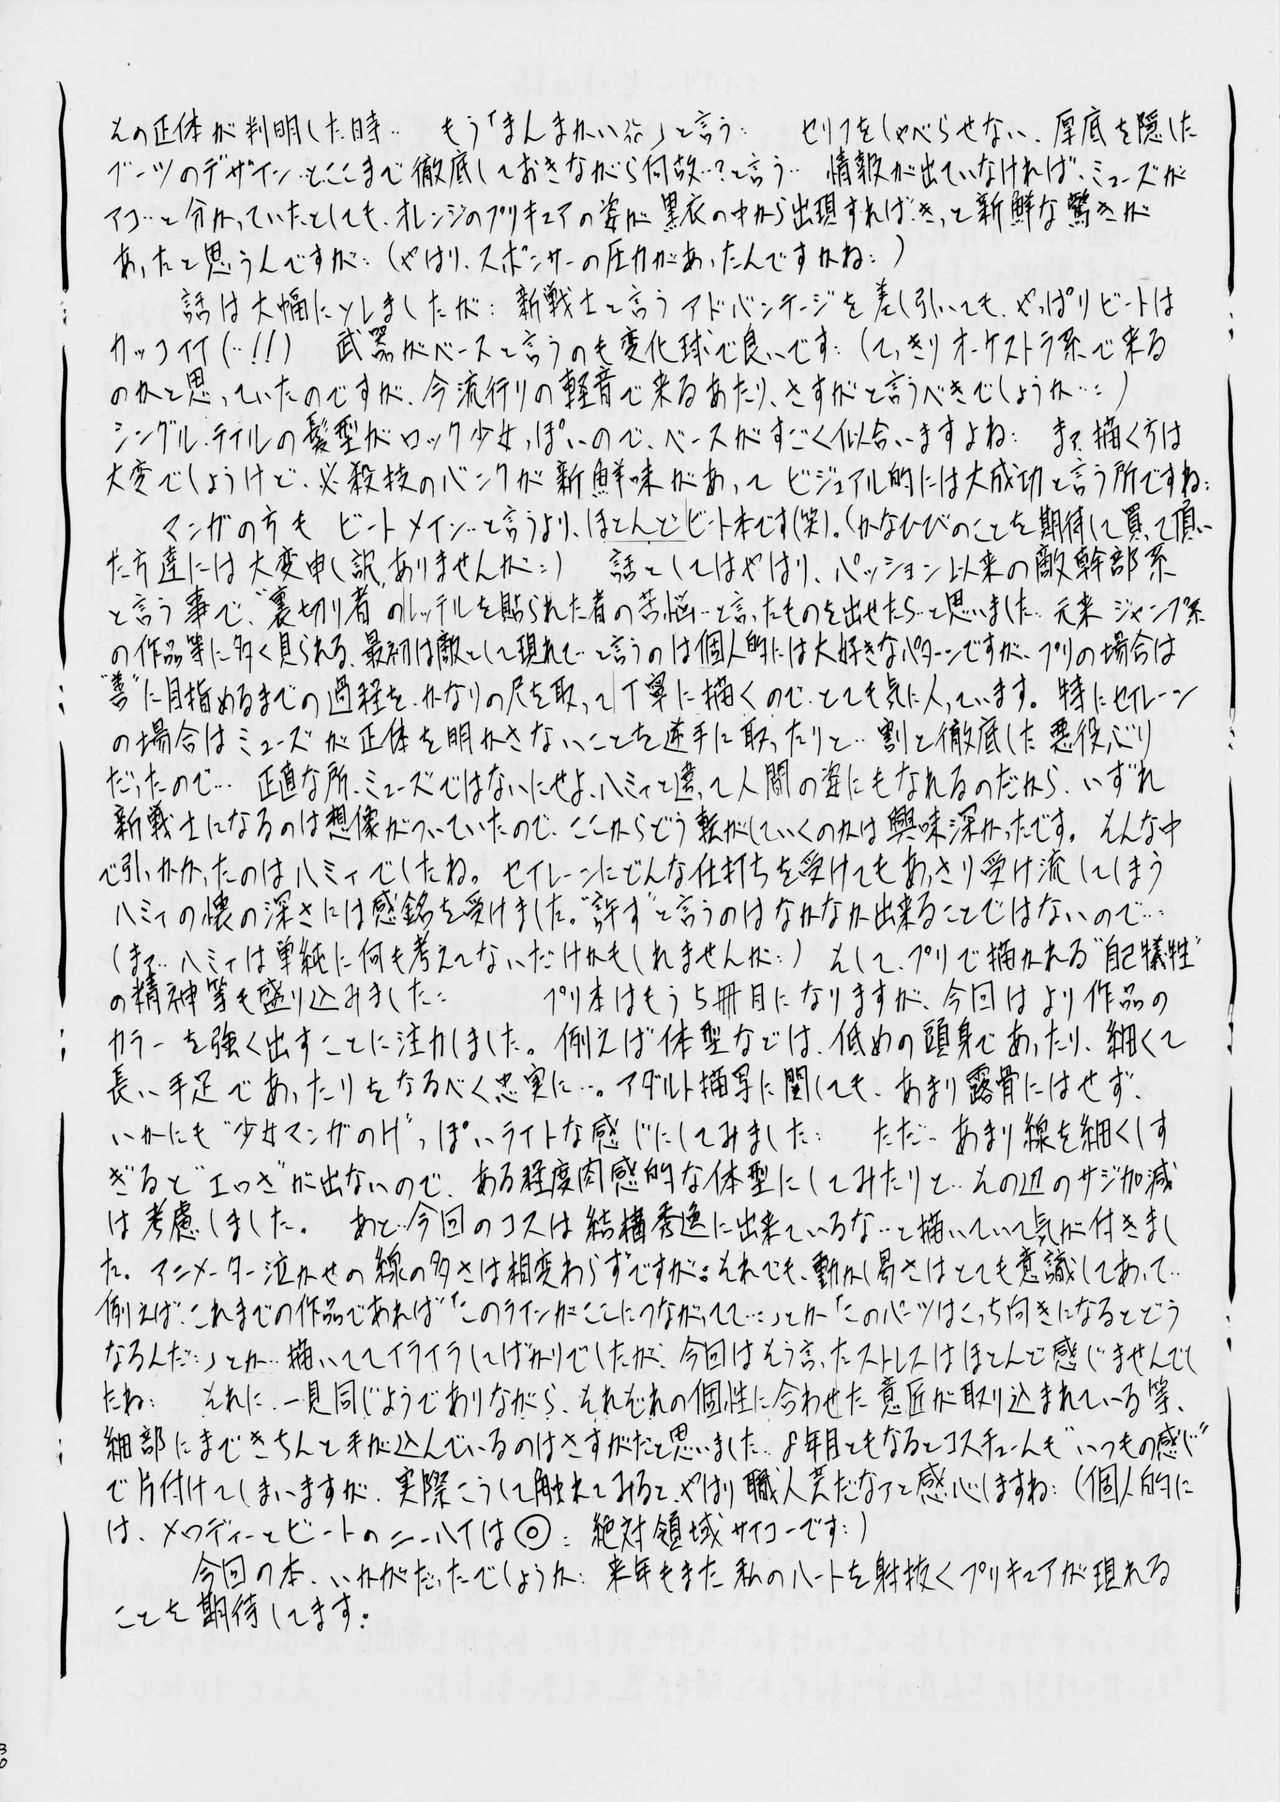 その正体が判明した時… もう「まんまかい!!」と言う… セリフをしゃべらせない、厚底を隠した
ブーツのデザイン…とここまで徹底しておきながら何故…?と言う… 情報が出ていなければ、ミューズが
アコ…と分かっていたとしても、オレンジのプリキュアの姿が黒衣の中から出現すれば、きっと新鮮な驚きが
あったと思うんですが…(やはり、スポンサーの圧力があったんですかね…)
話は大幅にソレましたが… 新戦士と言うアドバンテージを差し引いても、やっぱりビートは
カッコイイ(…!!) 武器がベースと言うのも変化球で良いです…(てっきりオーケストラ系で来る
のかと思っていたのですが、今流行りの軽音で来るあたり、さすがと言うべきでしょうか…)
シングル・テイルの髪型がロック少女っぽいので、ベースがすごく似合いますよね… まァ、描く方は
大変でしょうけど、必殺技のバンクが新鮮味があってビジュアル的には大成功と言う所ですね…
マンガの方もビートメイン…と言うより、ほとんどビート本です(笑)。(かなひびのことを期待して買って頂い
た方達には大変申し訳ありませんが…) 話としてはやはり、パッション以来の敵幹部系
と言う事で、“裏切り者”のレッテルを貼られた者の苦悩…と言ったものを出せたら…と思いました… 元来ジャンプ系
の作品等に多く見られる、最初は敵として現れて…と言うのは個人的には大好きなパターンですが、プリの場合は
“善”に目指めるまでの過程を、かなりの尺を取って丁寧に描くので、とても気に入っています。特にセイレーン
の場合はミューズが正体を明かさないことを逆手に取ったりと… 割と徹底した悪役ぶり
だったので… 正直な所、ミューズではないにせよ、ハミィと違って人間の姿にもなれるのだから、いずれ
新戦士になるのは想像がついていたので、ここからどう転がしていくのかは興味深かったです。そんな中
で引っかかったのはハミィでしたね。セイレーンにどんな仕打ちを受けてもあっさり受け流してしまう
ハミィの懐の深さには感銘を受けました。“許す”と言うのはなかなか出来ることではないので…
(まァ、ハミィは単純に何も考えてないだけかもしれませんが…) そして、プリで描かれる“自己犠牲”
の精神等も盛り込みました… プリ本はもう5冊目になりますが、今回はより作品の
カラーを強く出すことに注力しました。例えば体型などは、低めの頭身であったり、細くて
長い手足であったりをなるべく忠実に…。アダルト描写に関しても、あまり露骨にはせず、
いかにも“少女マンガのH”っぽいライトな感じにしてみました… ただ… あまり線を細くしす
ぎると“エロさ”が出ないので、ある程度肉感的な体型にしてみたりと… その辺のサジ加減
は考慮しました。 あと… 今回のコスは結構秀逸に出来ているな…と描いていて気が付きまし
た。アニメーター泣かせの線の多さは相変わらずですが… それでも、動かし易さはとても意識してあって…
例えば、これまでの作品であれば「このラインがここにつながってて…」とか「このパーツはこっち向きになるとどう
なるんだ…」とか… 描いててイライラしてばかりでしたが、今回はそう言ったストレスはほとんど感じませんでし
たね… それに、一見同じようでありながら、それぞれの個性に合わせた意匠が取り込まれている等、
細部にまできちんと手が込んでいるのはさすがだと思いました… 8年目ともなるとコスチュームも“いつもの感じ”
で片付けてしまいますが、実際こうして触れてみると、やはり職人芸だなァと感心しますね…(個人的に
は、メロディーとビートのニーハイは◎… 絶対領域サイコーです…)
今回の本、いかがだったでしょうか… 来年もまた私のハートを射抜くプリキュアが現れる
ことを期待してます…
30